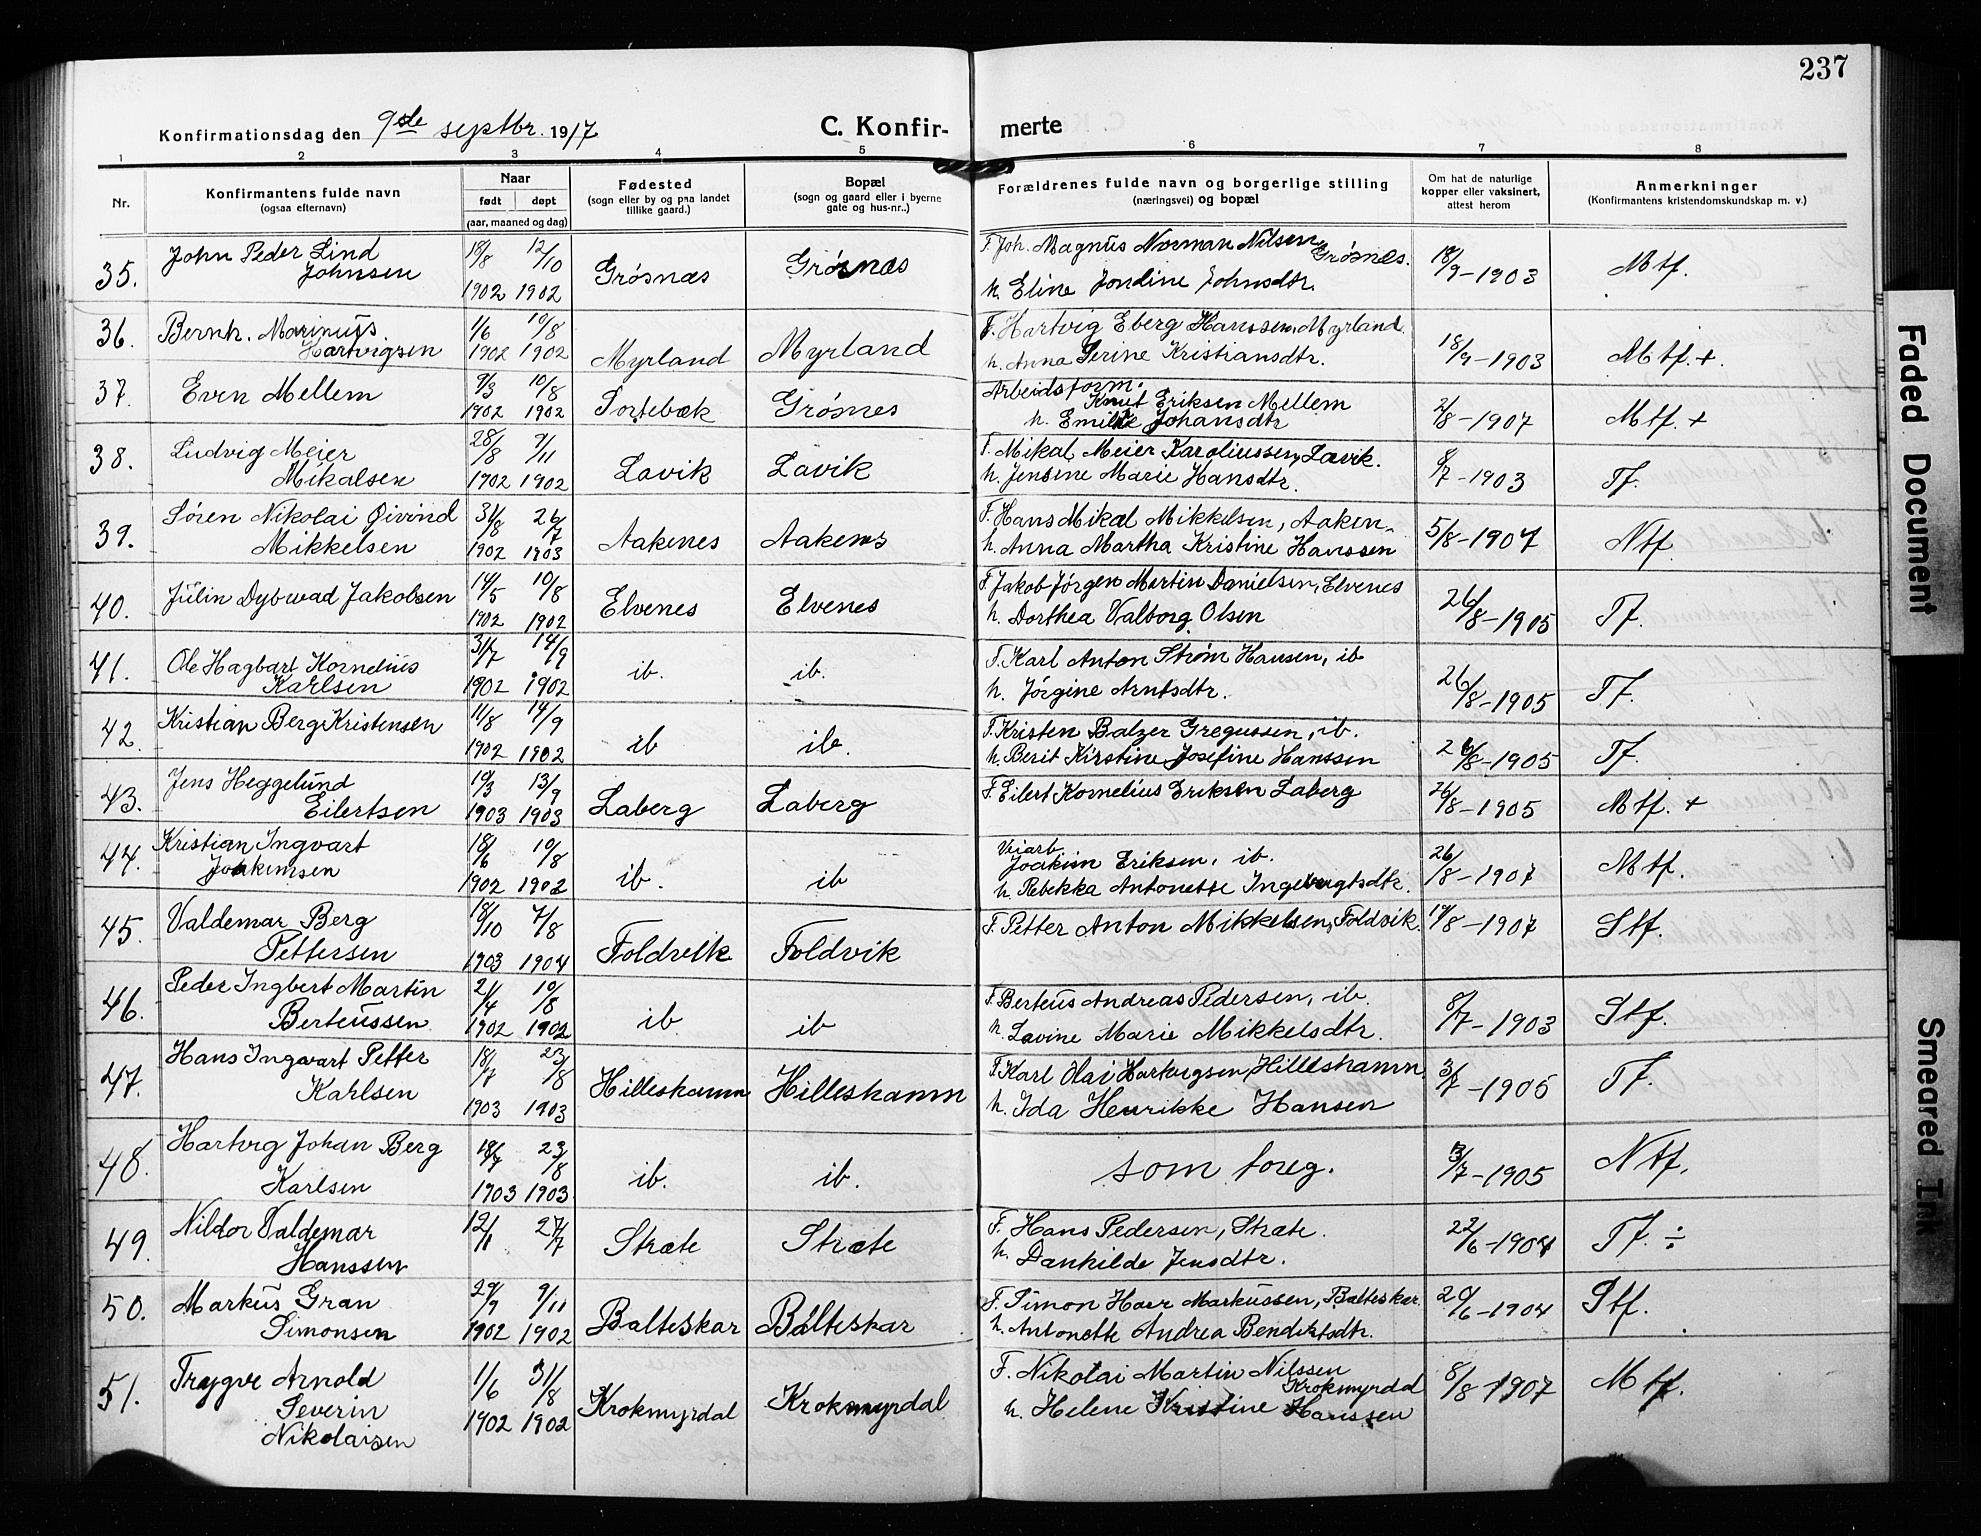 237
Konfirmationsdag den 9de septbr. 1917
C. Konfir-
merte
1 2 3 4 5 6 7 8
Nr.
Konfirmantens fulde navn
(ogsaa efternavn)
Naar
født døpt
(aar, maaned og dag)
Fødested
(sogn eller by og paa landet
tillike gaard.)
Bopæl
(sogn og gaard eller i byerne
gate og hus-nr.)
Forældrenes fulde navn og borgerlige stilling
(næringsvei) og bopæl
Om hat de naturlige
kopper eller vaksinert,
attest herom
Anmerkninger
(Konfirmantens kristendomskundskap m. v.)
35. John Peder Lind
Johnsen
18/8 12/10
1902 1902
Grósnæs
Grósnæs
F. Joh. Magnus Norman Nilsen
Grósnæs.
h. Eline Jondine Johnsdtr.
18/9-1903
Mtf.
36. Bernh. Marinus
Hartvigsen
1/6 10/8
1902 1902
Myrland
Myrland
F. Hartvig Eberg Hanssen, Myrland
h. Anna Serine Kristiansdtr.
18/9-1903
Mtf. +
37. Even Mellem
9/3 10/8
1902 1902
Sortebæk
Grósnes
Arbeidsform.
Knut Eriksen Mellem
h. Emilie Johansdtr
2/8-1907
Mtf. +
38. Ludvig Meier
Mikalsen
28/8 9/11
1902 1902
Lavik
Lavik
F. Mikal Meier Karoliussen, Lavik.
h. Jensine Marie Hansdtr.
8/7-1903
Tf.
39. Sóren Nikolai Øivind
Mikkelsen
31/8 26/7
1902 1903
Aakenes
Aakenes
F. Hans Mikal Mikkelsen, Aaken.
h. Anna Martha Kristine Hanssen
5/8-1907
Ntf
40. Julin Dybwad Jakobsen
14/5 10/8
1902 1902
Elvenes
Elvenes
F. Jakob Jórgen Martin Danielsen, Elvenes
h. Dorthea Valborg Olsen
26/8-1905
Tf.
41. Ole Hagbart Kornelius
Karlsen
31/7 14/9
1902 1902
ib.
ib.
F. Karl Anton Strøm Hansen, ib
h. Jórgine Arntsdtr.
26/8-1905
Tf.
42. Kristian Berg Kristensen
11/8 14/9
1902 1902
ib
ib.
F. Kristen Balzer Gregussen, ib.
h. Berit Kirstine Josefine Hanssen
26/8-1905
Tf.
43. Jens Heggelund
Eilertsen
19/3 13/9
1903 1903
Laberg
Laberg
F. Eilert Kornelius Eriksen Laberg
26/8-1905
Mtf. +
44. Kristian Ingvart
Joakimsen
18/6 10/8
1902 1902
ib.
ib
Veiarb
Joakim Eriksen, ib.
h. Rebekka Antonette Ingebrigtsdtr.
26/8-1907
Mtf.
45. Valdemar Berg
Pettersen
18/10 7/8
1903 1904
Foldvik
Foldvik
F. Petter Anton Mikkelsen, Foldvik.
19/8-1907
Stf.
46. Peder Ingbert Martin
Berteussen
21/4 10/8
1902 1902
ib
ib
F. Berteus Andreas Pedersen, ib.
h. Lovine Marie Mikkelsdtr.
8/7-1903
Stf.
47. Hans Ingvart Petter
Karlsen
18/7 23/8
1903 1903
Hilleshamn
Hilleshamn
F. Karl Olai Hartvigsen, Hilleshamn
h. Ida Henrikke Hansen
3/7-1905
Tf.
48. Hartvig Johan Berg
Karlsen
18/7 23/8
1903 1903
ib.
ib.
som foreg.
3/7-1905
Ntf.
49. Nildor Valdemar
Hanssen
12/11 27/7
Stræte
Stræte
F. Hans Pedersen, Stræte.
h. Dankilde Jensdtr.
22/6-1904
Tf. ÷
50. Markus Gran
Simonsen
29/9 9/11
1902 1902
Balteskar
Balteskar
F. Simon Haar Markussen, Balteskar.
h. Antonette Andrea Bendiktsdtr.
20/6-1904
Stf.
51. Trygve Arnold
Severin
Nikolaisen
1/6 31/8
1902 1902
Krokmyrdal
Krokmyrdal
F. Nikolai Martin Nilssen
Krokmyrdal
h. Helene Kristine Hanssen
8/8 1907
Mtf.
Faded Document
Smeared Ink